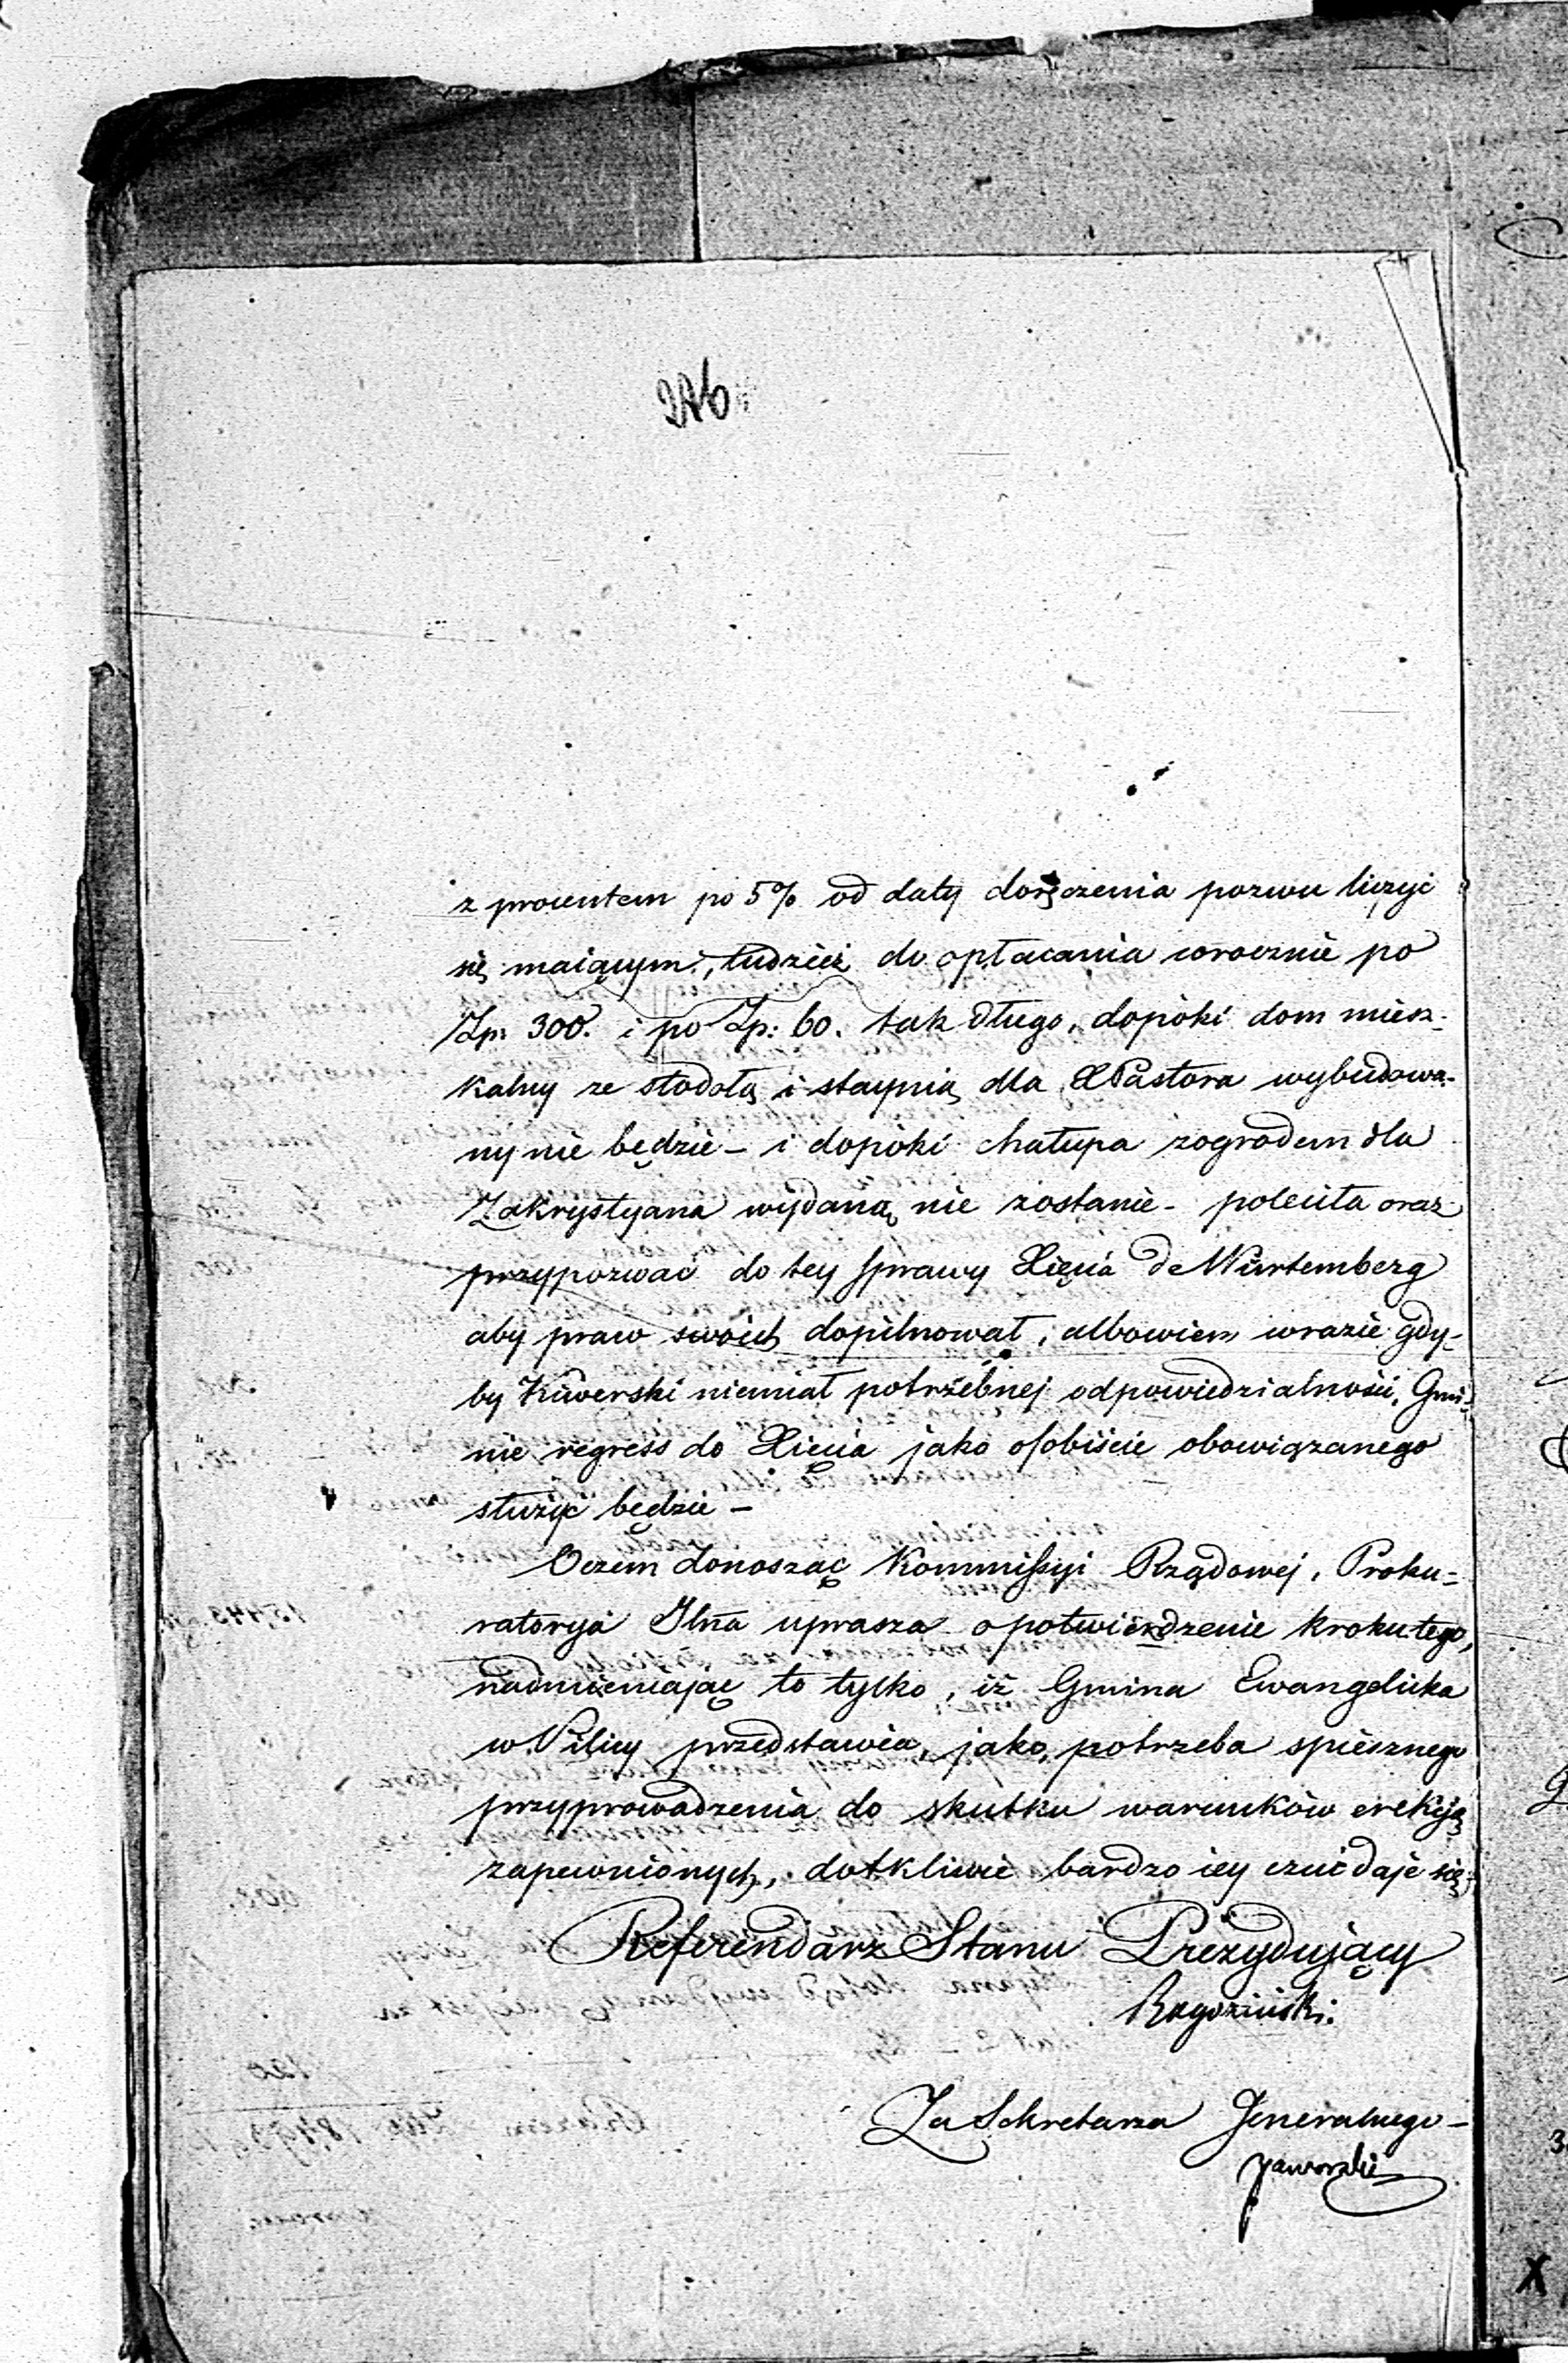 z procentem po 5% od daty doręczenia pozwu liczyć
się maiącym, tudzież do opłacania corocznie po
Zp: 300. i po Zp: 60. tak długo, dopóki dom miesz-
kalny ze stodołą i staynią dla X Pastora wybudowa-
ny nie będzie – i dopóki chałupa zogrodem dla
Zakrystyana wydaną nie zostanie – poleciła oraz
przypozwać do tey sprawy Xięcia de Würtemberg
aby praw swoich dopilnował, albowiem wrazie gdy-
by Kiwerski niemiał potrzebnej odpowiedzialności, Gmi-
nie regress do Xięcia jako osobiście obowiązanego
służyć będzie –
Oczem donosząc Kommissyi Rządowej, Proku-
ratorya Jlna uprasza o potwierdzenie kroku tego,
nadmieniając to tylko, iż Gmina Ewangelicka
w Pilicy przedstawia, jako potrzeba spiesznego
przyprowadzenia do skutku warunków erekcyą
zapewnionych, dotkliwie bardzo iey czuć daje się
Referendarz Stanu Prezydujący
Rogoziński.
Za Sekretarza Jeneralnego –
Jaworski